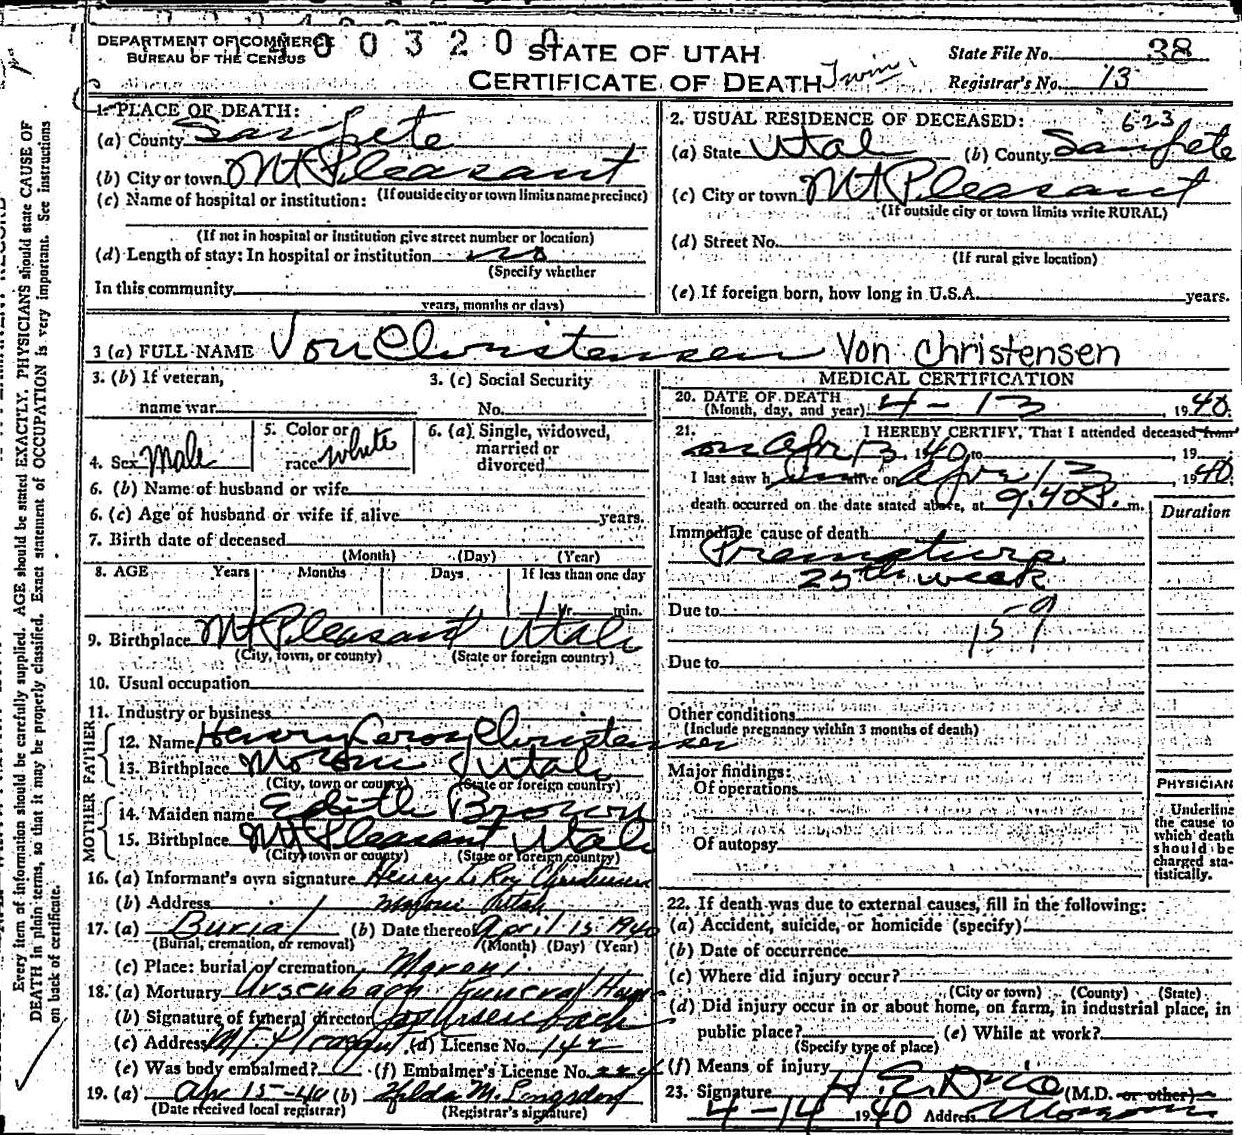 DEPARTMENT OF COMMERCE
BUREAU OF THE CENSUS
0 0 3 2 0 0
STATE OF UTAH
CERTIFICATE OF DEATH Twin
State File No. 38
Registrar's No. 13
1. PLACE OF DEATH:
(a) County Sanpete
(b) City or town Mt Pleasant
(If outside city or town limits name precinct)
(c) Name of hospital or institution:
(If not in hospital or institution give street number or location)
(d) Length of stay: In hospital or institution no
(Specify whether
In this community
years, months or days)
2. USUAL RESIDENCE OF DECEASED: 623
(a) State Utah (b) County Sanpete
(c) City or town Mt Pleasant
(If outside city or town limits write RURAL)
(d) Street No.
(If rural give location)
(e) If foreign born, how long in U.S.A. years.
3 (a) FULL NAME Von Christensen Von Christensen
3. (b) If veteran,
name war
3. (c) Social Security
No.
4. Sex Male
5. Color or
race White
6. (a) Single, widowed,
married or
divorced
6. (b) Name of husband or wife
6. (c) Age of husband or wife if alive years.
7. Birth date of deceased
(Month) (Day) (Year)
8. AGE Years Months Days If less than one day
1 hr. min.
9. Birthplace Mt Pleasant Utah
(City, town, or county) (State or foreign country)
10. Usual occupation
11. Industry or business
FATHER
12. Name Henry Leroy Christensen
13. Birthplace Moroni Utah
(City, town or county) (State or foreign country)
MOTHER
14. Maiden name Edith Brown
15. Birthplace Mt Pleasant Utah
(City, town or county) (State or foreign country)
16. (a) Informant's own signature Henry Le Roy Christensen
(b) Address Moroni Utah
17. (a) Burial (b) Date thereof April 15 1940
(Burial, cremation, or removal) (Month) (Day) (Year)
(c) Place: burial or cremation Moroni
18. (a) Mortuary Ursenbach Funeral Home
(b) Signature of funeral director Ursenbach
(c) Address Mt. Pleasant (d) License No. 142
(e) Was body embalmed? (f) Embalmer's License No.
19. (a) Apr 15-40 (b) Hilda M.
(Date received local registrar) (Registrar's signature)
MEDICAL CERTIFICATION
20. DATE OF DEATH
(Month, day, and year) 4-13, 1940.
21. I HEREBY CERTIFY, That I attended deceased from
on Apr 13, 1940, to , 19
I last saw h alive on Apr 13 1940.
death occurred on the date stated above, at 9.40 P. m.
Duration
Immediate cause of death
Premature
25th week
Due to
159
Due to
Other conditions
(Include pregnancy within 3 months of death)
Major findings:
Of operations
Of autopsy
PHYSICIAN
Underline
the cause to
which death
should be
charged sta-
tistically.
22. If death was due to external causes, fill in the following:
(a) Accident, suicide, or homicide (specify)
(b) Date of occurrence
(c) Where did injury occur?
(City or town) (County) (State)
(d) Did injury occur in or about home, on farm, in industrial place, in
public place? (e) While at work?
(Specify type of place)
(f) Means of injury
23. Signature H. E. (M.D. or other)
4-14 1940 Address Moroni
Every item of information should be carefully supplied. AGE should be stated EXACTLY. PHYSICIANS should state CAUSE OF
DEATH in plain terms, so that it may be properly classified. Exact statement of OCCUPATION is very important. See instructions
on back of certificate.